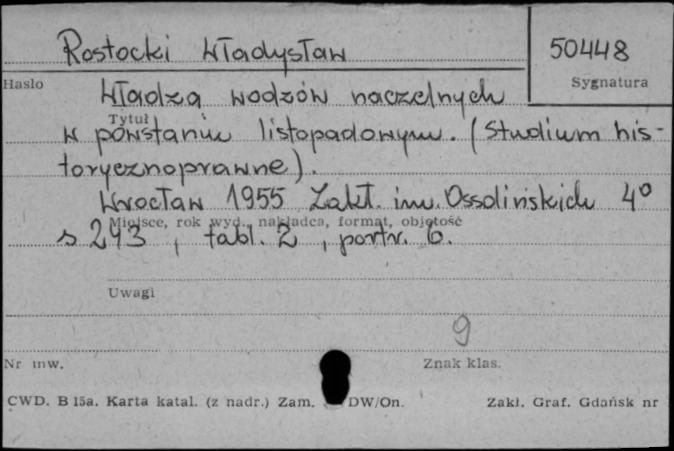 Rostocki Władysław
50448
Hasło
Sygnatura
Władza wodzów naczelnych
Tytuł
w powstaniu listopadowym. (Studium his-
torycznoprawne).
Wrocław 1955 Zakł. im. Ossolińskich 4°
Miejsce, rok wyd., nakładca, format, objętość
s 243, tabl. 2, portr. 6.
Uwagi
9
Nr inw.
Znak klas.
CWD. B 15a. Karta katal. (z nadr.) Zam. DW/On.
Zakł. Graf. Gdańsk nr